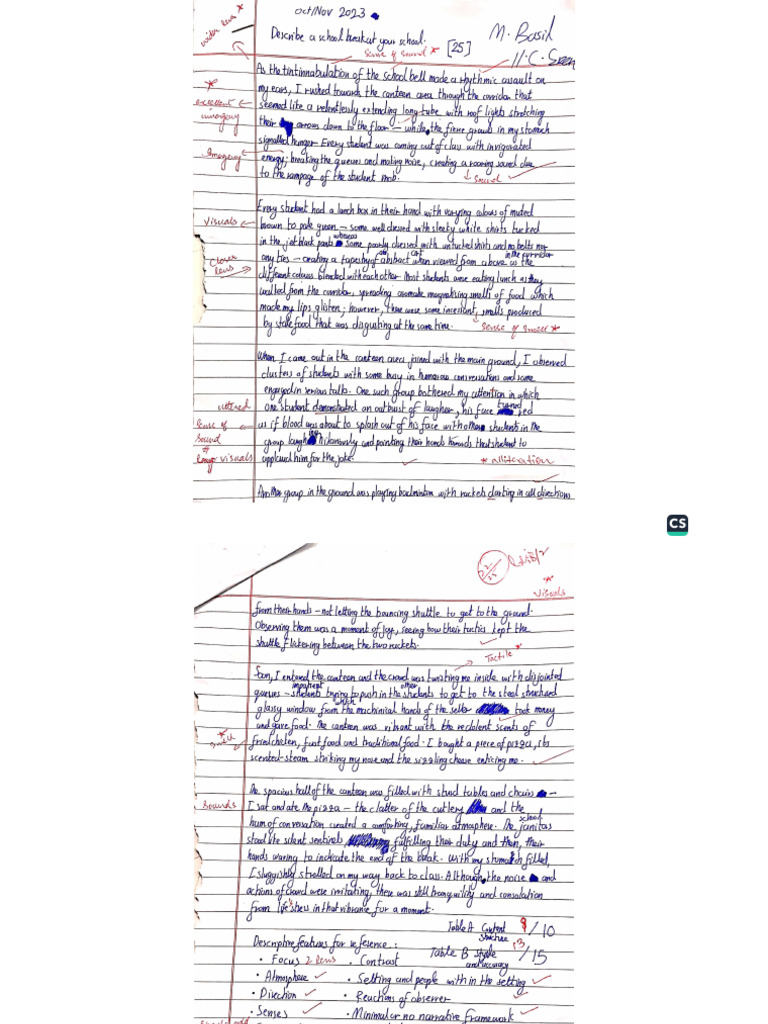 Oct/Nov 2023
Describe a school break at your school.
[25]
M. Basil
11-C. Green
wider lens *
Sense of sound *
As the tintinnabulation of the school bell made a rhythmic assault on
my ears, I rushed towards the canteen area through the corridor that
* excellent imagery
seemed like a relentlessly extending long tube with roof lights stretching
their arrows down to the floor – while the fierce growls in my stomach
signalled hunger. Every student was coming out of class with invigorated
Imagery
energy; breaking the queues and making noise, creating a roaring sound due
to the rampage of the student mob.
sound
Every student had a lunch box in their hand with varying colours of muted
Visuals
brown to pale green – some well dressed with sleeky white shirts tucked
in the jet black pants whereas some poorly dressed with untucked shirts and no belts nor
Closer lens
any ties – creating a tapestry of abstract art when viewed from above as the
in the corridor
different colours blended with each other. Most students were eating lunch as they
walked from the corridor, spreading aromatic magnetising smells of food which
made my lips glisten; however, there were some incessant smells produced
by stale food that was disgusting at the same time.
Sense of smell *
When I came out in the canteen area joined with the main ground, I observed
clusters of students with some busy in humorous conversations and some
engaged in serious talks. One such group bothered my attention in which
uttered
one student demonstrated an outburst of laughter, his face turned red
Sense of sound
as if blood was about to splash out of his face with other students in the
group laughing hilariously and pointing their hands towards that student to
visuals
applaud him for the joke.
* alliteration
Another group in the ground was playing badminton with rackets darting in all directions
CS
22/25
* visuals
from their hands – not letting the bouncing shuttle to get to the ground.
Observing them was a moment of joy, seeing how their tactics kept the
shuttle flickering between the two rackets.
Tactile *
Soon, I entered the canteen and the crowd was twisting me inside with disjointed
queues – impatient students trying to push in the other students to get to the steel structured
glassy window from which the machinital hands of the seller took money
and gave food. The canteen was vibrant with the redolent scents of
* smell
fried chicken, fast food and traditional food. I bought a piece of pizza, its
scented-steam striking my nose and the sizzling cheese enticing me.
The spacious hall of the canteen was filled with steel tables and chairs –
Sounds
I sat and ate the pizza – the clatter of the cutlery and the
hum of conversation created a comforting, familiar atmosphere. The school janitors
stood like silent sentinels fulfilling their duty and then, their
hands waving to indicate the end of the break. With my stomach filled,
I sluggishly strolled on my way back to class. Although, the noise and
actions of crowd were irritating, there was still tranquility and consolation
from life's stress in that vibrance for a moment.
Table A Content structure 9/10
Table B Style and accuracy 13/15
Descriptive features for reference:
• Focus 2 lens • Contrast
• Atmosphere • Setting and people with in the setting
• Direction • Reactions of observer
• Senses • Minimal or no narrative framework